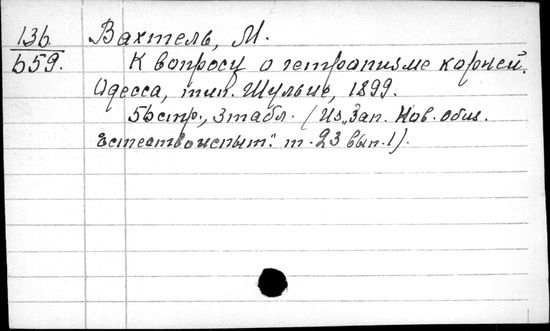 136. Вахтель, М.
659. К вопросу о геотропизме корней.
Одесса, тип. Шульце, 1899.
56 стр., 3 табл. (Из „Зап. Нов. общ.
естествоиспыт." т. 23 вып. 1).